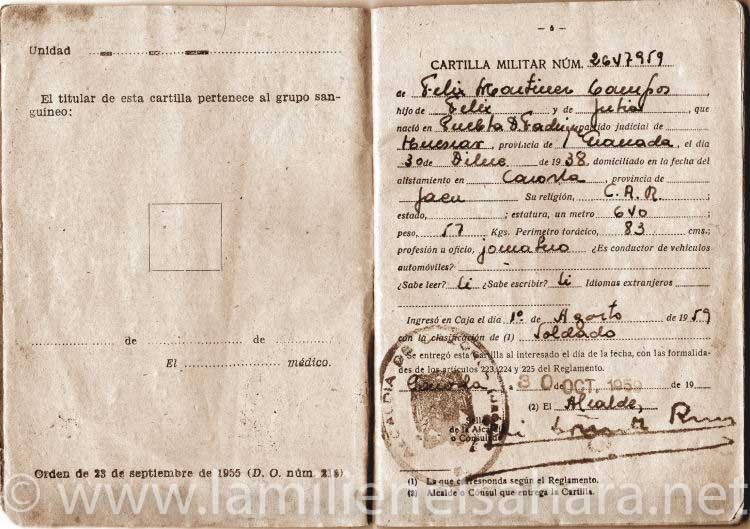 Unidad
El titular de esta cartilla pertenece al grupo san-
guíneo:
de de
El médico.
Orden de 23 de septiembre de 1955 (D. O. núm. 215)
— 5 —
CARTILLA MILITAR NÚM. 2647959
de Felix Martinez Campos,
hijo de Felix y de Julia, que
nació en Puebla D. Fadrique partido judicial de
Huescar, provincia de Granada, el día
30 de Dibre de 1938, domiciliado en la fecha del
alistamiento en Cazorla, provincia de
Jaen Su religión, C. A. R. ;
estado, ; estatura, un metro 640 ;
peso, 57 Kgs. Perímetro torácico, 83 cms.;
profesión u oficio, jornalero ¿Es conductor de vehículos
automóviles?
¿Sabe leer? Si ¿Sabe escribir? Si Idiomas extranjeros
Ingresó en Caja el día 1º de Agosto de 1959
con la clasificación de (1) Soldado
Se entregó esta Cartilla al interesado el día de la fecha, con las formalida-
des de los artículos 223, 224 y 225 del Reglamento.
Cazorla, a 30 OCT. 1959 de de 19
(2) El Alcalde,
Sello
de la Alcaldía
o Consulado
ALCALDIA DE
(1) La que corresponda según el Reglamento.
(2) Alcalde o Cónsul que entrega la Cartilla.
© www.lamilienelsahara.net